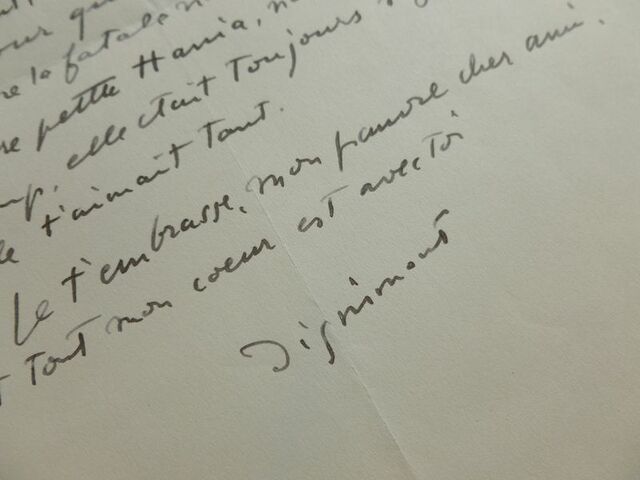 our qu
re la fatale n
re petite Hania, n
mp, elle était toujours s
le t'aimait tant.
Je t'embrasse, mon pauvre cher ami,
t tout mon coeur est avec toi
Dignimont